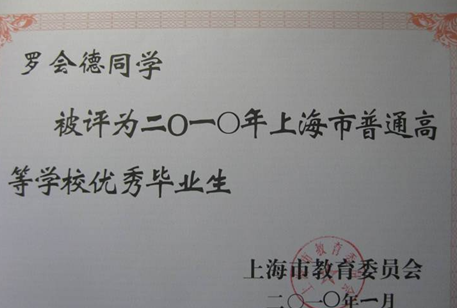 罗会德同学
被评为二〇一〇年上海市普通高
等学校优秀毕业生
上海市教育委员会
二〇一〇年一月